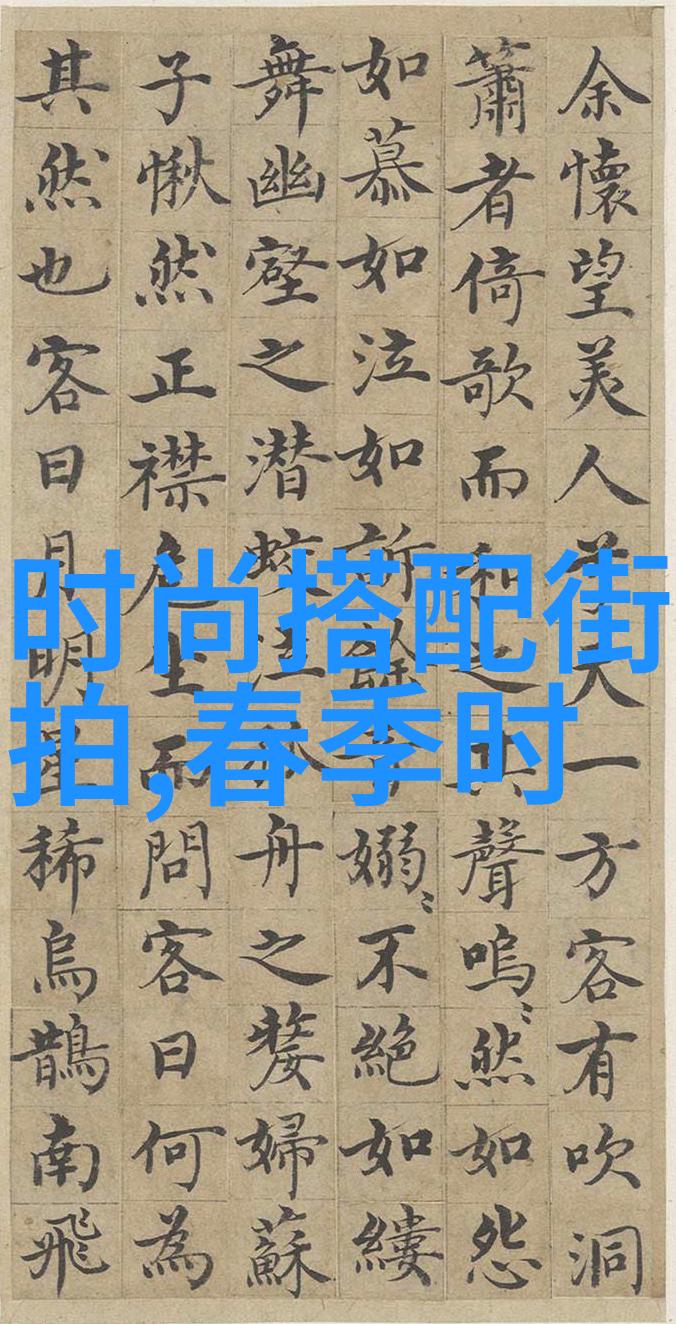 余懷望美人天一方客有吹洞
簫者倚歌而和之其聲嗚〻然如怨
如慕如泣如訴餘音嫋〻不絕如縷
舞幽壑之潛蛟泣孤舟之嫠婦蘇
子愀然正襟危坐而問客曰何為
其然也客曰月明星稀烏鵲南飛
时尚搭配街
拍,春季时